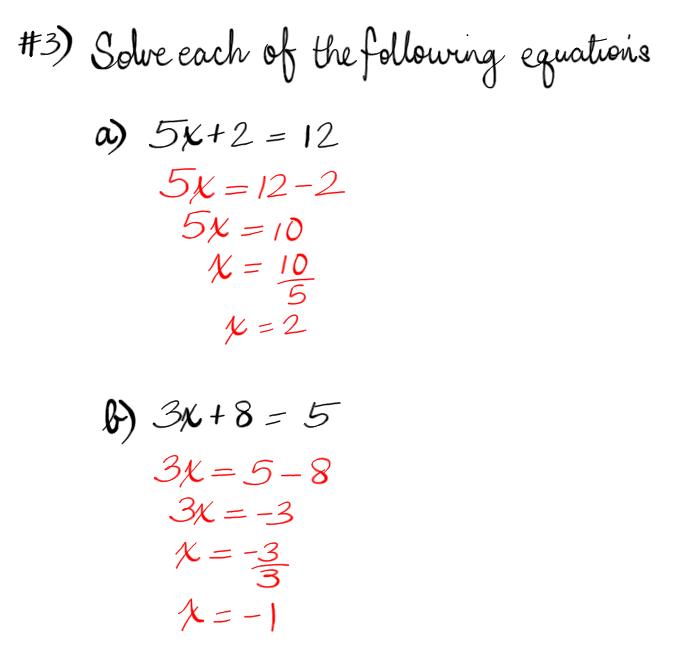 #3) Solve each of the following equations
a) 5x+2 = 12
5x = 12-2
5x = 10
x = 10/5
x = 2
b) 3x+8 = 5
3x = 5-8
3x = -3
x = -3/3
x = -1